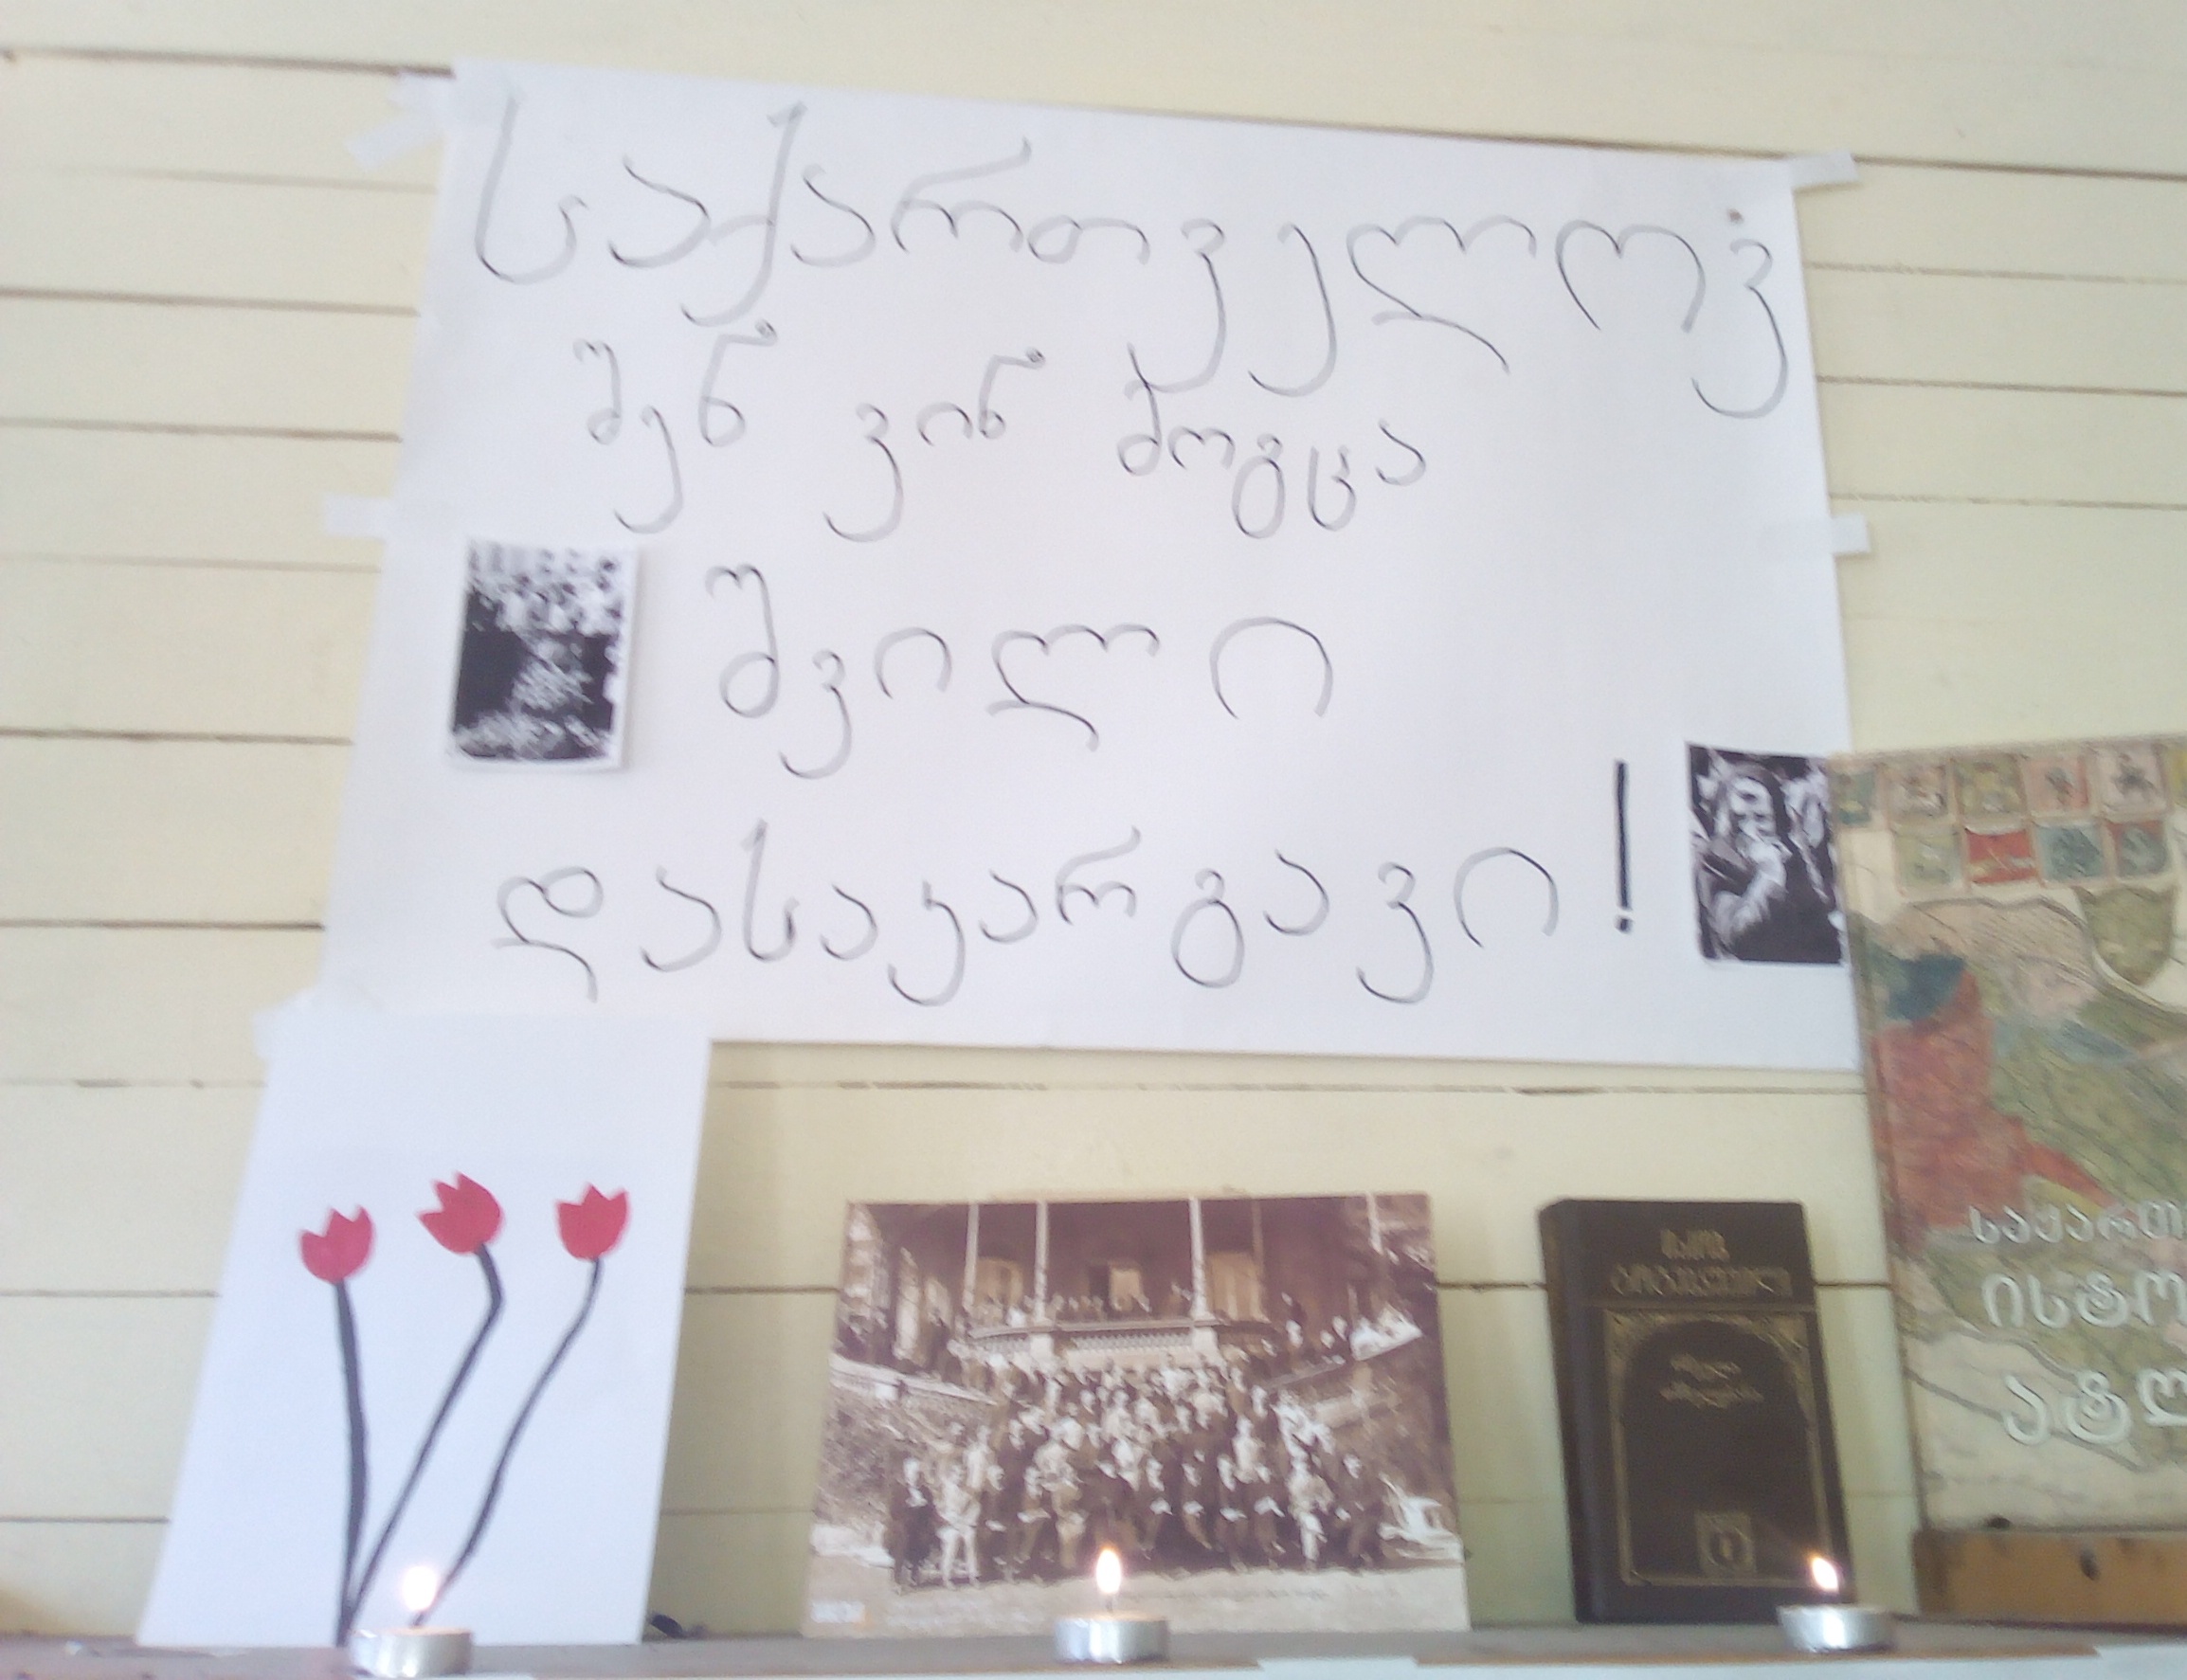 საქართველოვ
შენ ვინ მოგცა
შვილი
დასაკარგავი!
საქართ
ისტო
ატლ